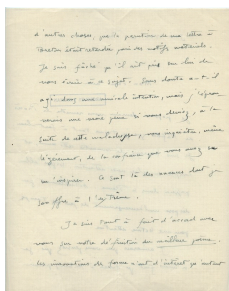 d'autres choses, que la parution de ma lettre à
était retardée pour des motifs matériels.
Je suis fâché qu'il ait pris sur lui de
vous écrire à ce sujet. Sans doute a-t-il
agi dans une amicale intention, mais j'éprou-
verais une vraie peine si vous deviez, à la
suite de cette maladresse, vous inquiéter, même
légèrement, de la confiance que vous avez
su m'inspirer. Ce sont là des erreurs dont je
souffre à l'extrême.
Je suis tout à fait d'accord avec
vous sur votre définition du meilleur poème.
Les innovations de forme n'ont d'intérêt qu'autant